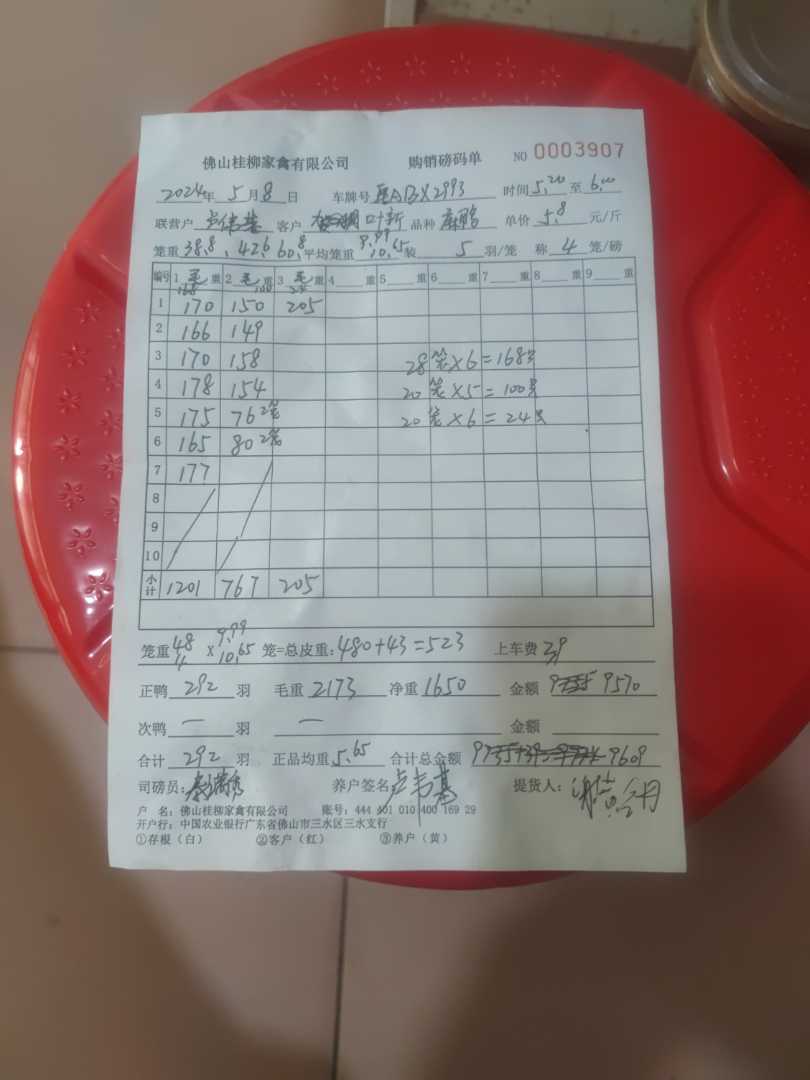 佛山桂柳家禽有限公司 购销磅码单 NO 0003907
2024年 5月8日 车牌号 ABX2993 时间5.20至6.00
联营户 卢伟基 客户 叶新 品种 麻鸭 单价 5.8 元/斤
笼重 38.8, 42.6 60.8 平均笼重 9.99 10.65 装 5 羽/笼 称 4 笼/磅
编号 1 毛 重 2 毛 重 3 毛 重 4 重 5 重 6 重 7 重 8 重 9 重
1 170 150 205
2 166 149
3 170 158 28笼×6=168只
4 178 154 20笼×5=100只
5 175 76 2笼 20笼×6=24只
6 165 80 2笼
7 177
8
9
10
小计 1201 767 205
笼重 48 4 × 9.99 10.65 笼=总皮重: 480+43=523 上车费 39
正鸭 292 羽 毛重 2173 净重 1650 金额 9570
次鸭 一 羽 一 金额
合计 292 羽 正品均重 5.65 合计总金额 9609
司磅员: 养户签名 卢伟基 提货人:
户 名: 佛山桂柳家禽有限公司 账号: 444 401 010 400 169 29
开户行: 中国农业银行广东省佛山市三水区三水支行
①存根（白） ②客户（红） ③养户（黄）